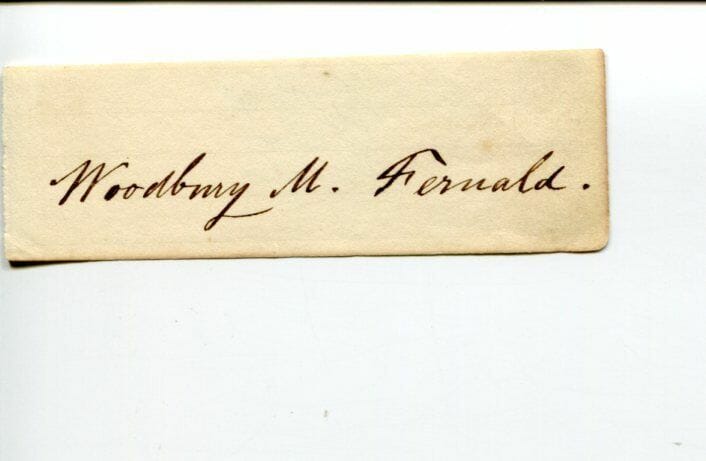 Woodbury M. Fernald.